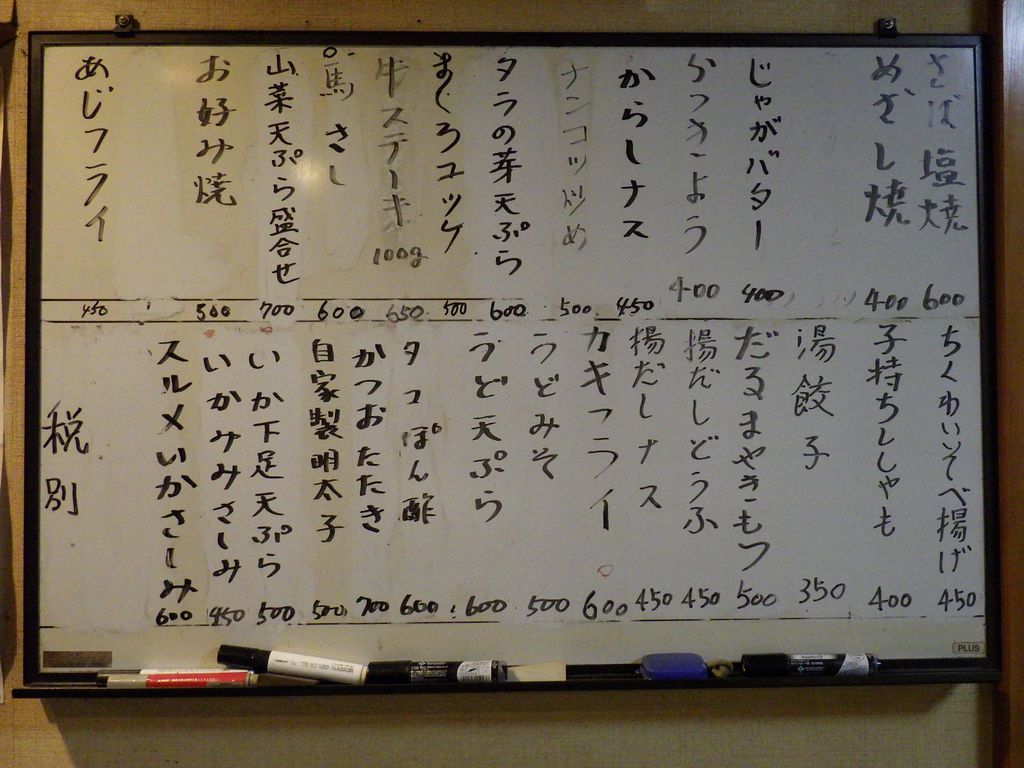 さば塩焼 600
めざし焼 400
じゃがバター 400
らっきょう 400
からしナス 450
ナンコツ炒め 500
タラの芽天ぷら 600
まぐろユッケ 500
牛ステーキ 100g 650
馬さし 600
山菜天ぷら盛合せ 700
お好み焼 500
あじフライ 450
ちくわいそべ揚げ 450
子持ちししゃも 400
湯餃子 350
だるまやきもつ 500
揚だしどうふ 450
揚だしナス 450
カキフライ 600
うどみそ 500
うど天ぷら 600
タコぽん酢 600
かつおたたき 700
自家製明太子 500
いか下足天ぷら 500
いかみみさしみ 450
スルメいかさしみ 600
税別
PLUS